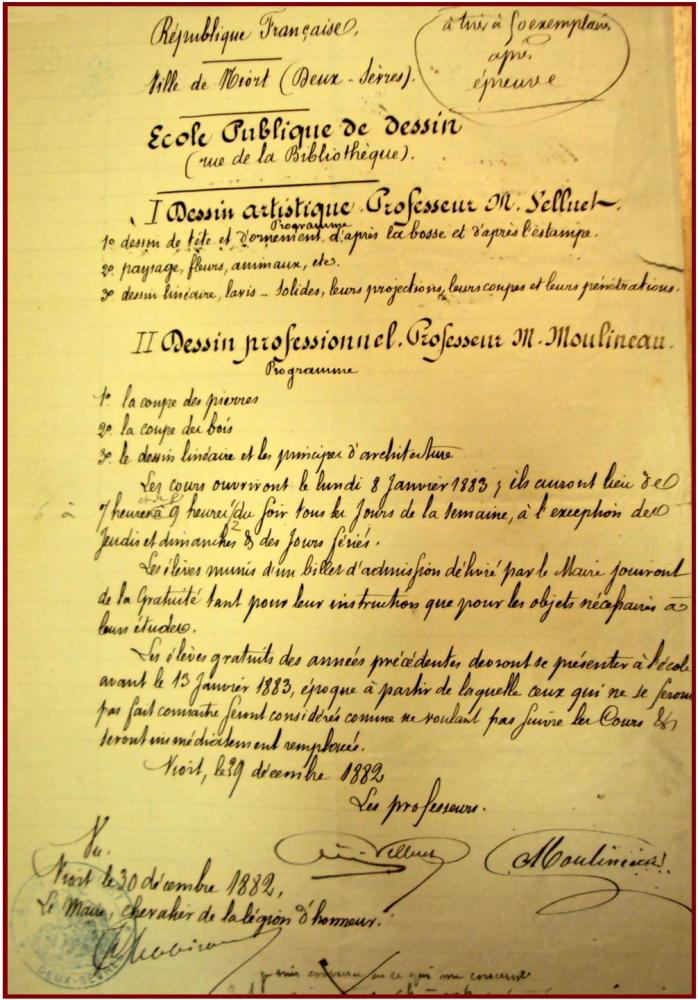 République Française.
à tirer à 50 exemplaires
après
épreuve
Ville de Niort (Deux-Sèvres).
Ecole Publique de dessin
(rue de la Bibliothèque).
I Dessin artistique. Professeur M.
Programme
1º dessin de tête et d'ornement d'après la bosse et d'après l'estampe.
2º paysage, fleurs, animaux, etc.
3º dessin linéaire, lavis - solides, leurs projections, leurs coupes et leurs pénétrations.
II Dessin professionnel. Professeur M. Moulineau.
Programme
1º la coupe des pierres
2º la coupe des bois
3º le dessin linéaire et les principes d'architecture
Les cours ouvriront le lundi 8 Janvier 1883 ; ils auront lieu de
7 heures à 9 heures du soir tous les Jours de la semaine, à l'exception des
Jeudis et dimanches & des Jours fériés.
Les élèves munis d'un billet d'admission délivré par le Maire jouiront
de la Gratuité tant pour leur instruction que pour les objets nécessaires à
leurs études.
Les élèves gratuits des années précédentes devront se présenter à l'école
avant le 13 Janvier 1883, époque à partir de laquelle ceux qui ne se seront
pas fait connaître seront considérés comme ne voulant pas suivre les Cours &
seront immédiatement remplacés.
Niort, le 29 décembre 1882
Les professeurs.
Vu.
Moulineau
Niort le 30 décembre 1882,
Le Maire, chevalier de la légion d'honneur.
DEUX-SÈVRES
ce qui me concerne